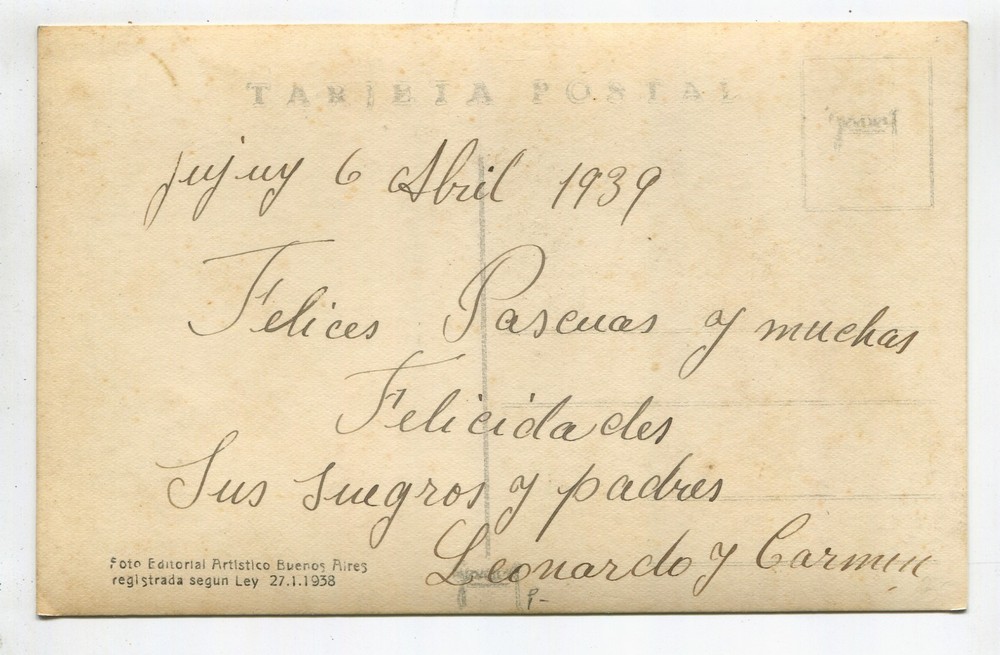 TARJETA POSTAL
jujuy 6 Abril 1939
Felices Pascuas y muchas
Felicidades
Sus suegros y padres
Leonardo y Carmen
Foto Editorial Artistico Buenos Aires
registrada segun Ley 27.1.1938